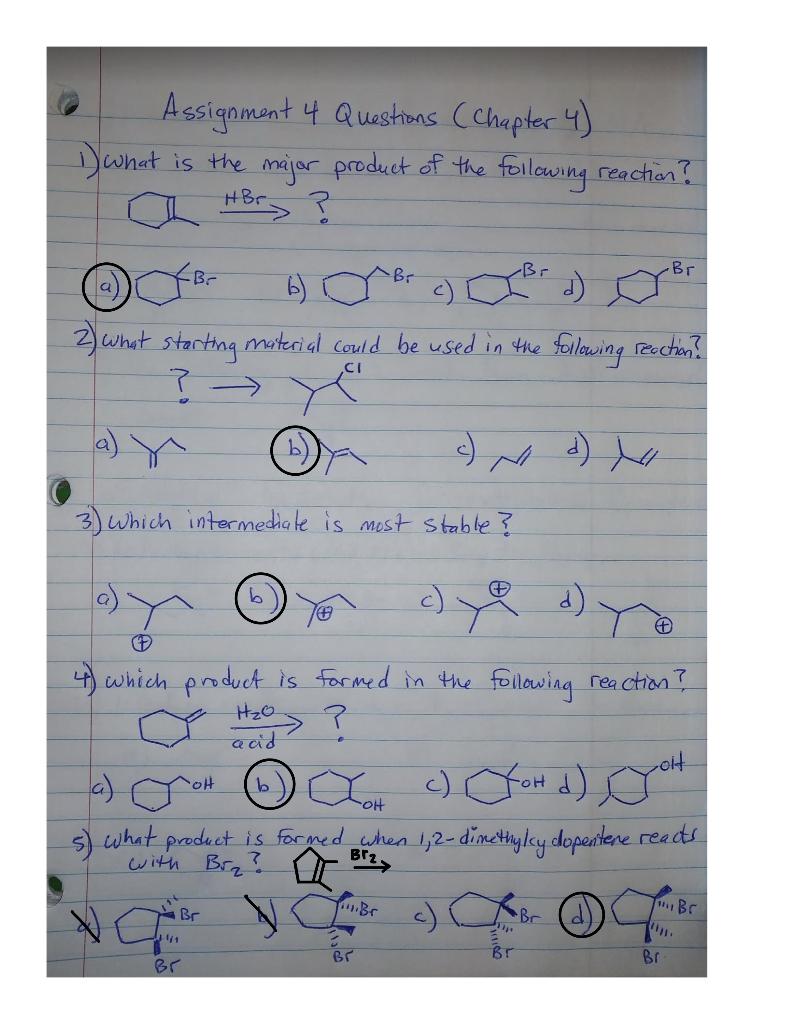 Assignment 4 Questions (Chapter 4)
1) What is the major product of the following reaction?
HBr ?
a) Br b) Br c) Br d) Br
2) What starting material could be used in the following reaction?
? Cl
a) b) c) d)
3) Which intermediate is most stable?
a) + b) + c) + d) +
4) which product is formed in the following reaction?
H2O acid ?
a) OH b) OH c) OH d) OH
5) What product is formed when 1,2-dimethylcyclopentene reacts
with Br2? Br2
a) Br Br b) Br Br c) Br Br d) Br Br